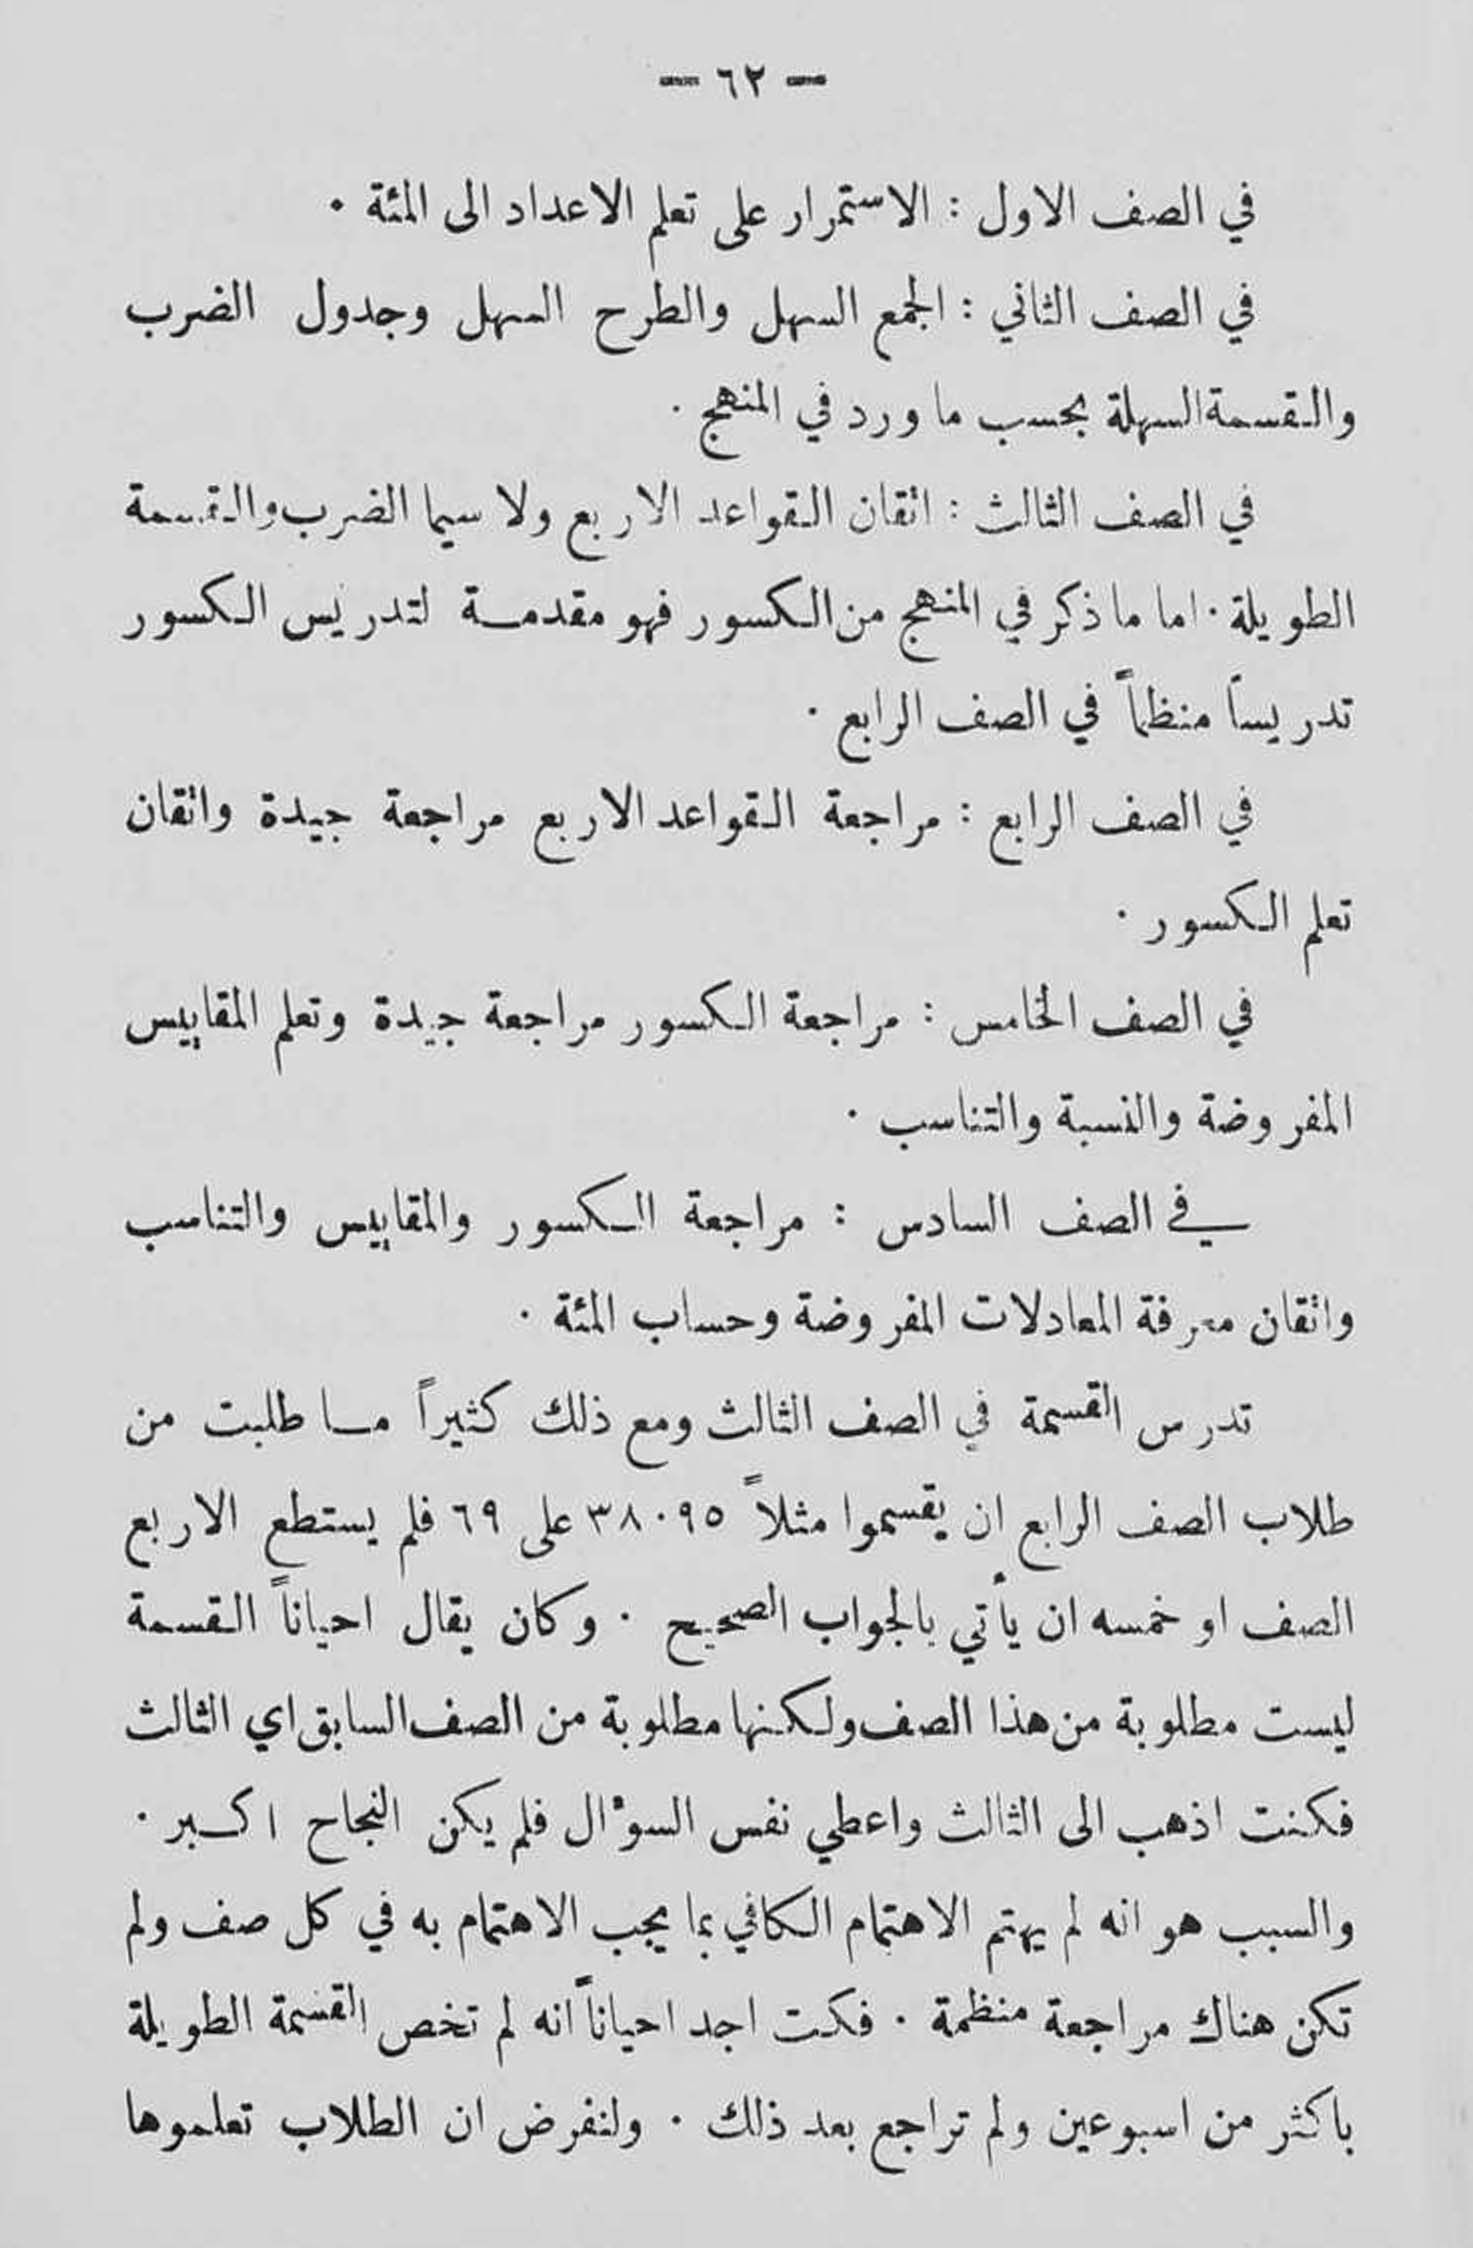 — ٦٢ —
في الصف الاول : الاستمرار على تعلم الاعداد الى المئة .
في الصف الثاني : الجمع السهل والطرح السهل وجدول الضرب
والقسمة السهلة بحسب ما ورد في المنهج .
في الصف الثالث : اتقان القواعد الاربع ولا سيما الضرب والقسمة
الطويلة . اما ما ذكر في المنهج من الكسور فهو مقدمة لتدريس الكسور
تدريساً منظماً في الصف الرابع .
في الصف الرابع : مراجعة القواعد الاربع مراجعة جيدة واتقان
تعلم الكسور .
في الصف الخامس : مراجعة الكسور مراجعة جيدة وتعلم المقاييس
المفروضة والنسبة والتناسب .
في الصف السادس : مراجعة الكسور والمقاييس والتناسب
واتقان معرفة المعادلات المفروضة وحساب المئة .
تدرس القسمة في الصف الثالث ومع ذلك كثيراً ما طلبت من
طلاب الصف الرابع ان يقسموا مثلاً ٣٨٠٩٥ على ٦٩ فلم يستطع الا ربع
الصف او خمسه ان يأتي بالجواب الصحيح . وكان يقال احياناً القسمة
ليست مطلوبة من هذا الصف ولكنها مطلوبة من الصف السابق اي الثالث
فكنت اذهب الى الثالث واعطي نفس السؤال فلم يكن النجاح اكبر .
والسبب هو انه لم يهتم الاهتمام الكافي بما يجب الاهتمام به في كل صف ولم
تكن هناك مراجعة منظمة . فكنت اجد احياناً انه لم تخص القسمة الطويلة
باكثر من اسبوعين ولم تراجع بعد ذلك . ولنفرض ان الطلاب تعلموها